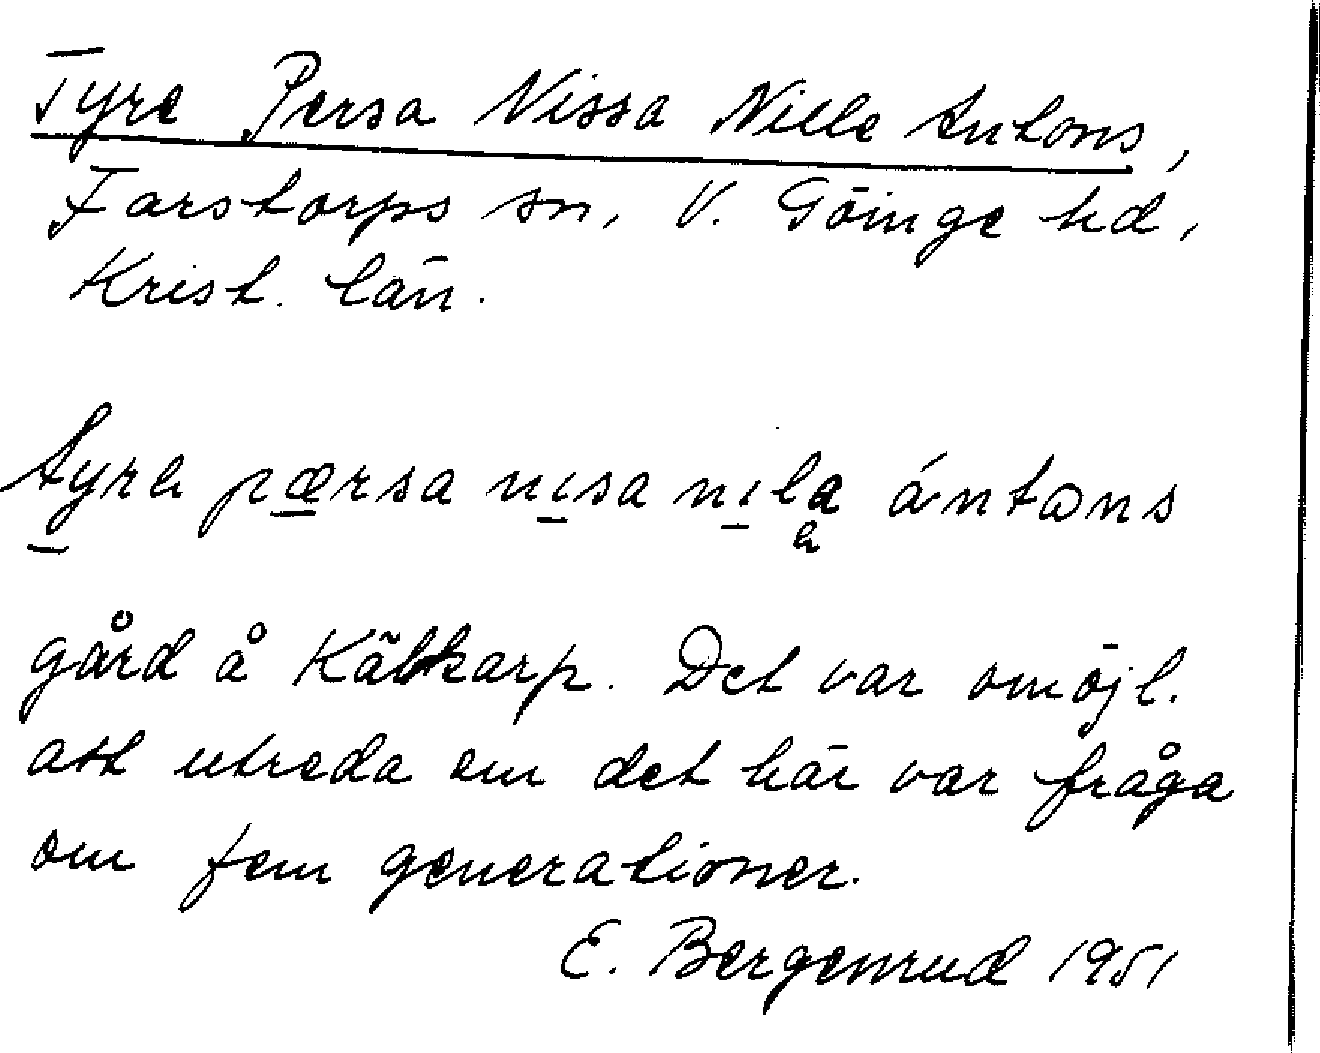 Tyre Persa Nissa Nille Antons,
Farstorps sn, V. Göinge hd,
Krist. län.
tyrə pærsa nɪsa nɪla ántɷns
ə
gård å Kälkarp. Det var omöjl.
att utreda om det här var fråga
om fem generationer.
E. Bergenrud 1951